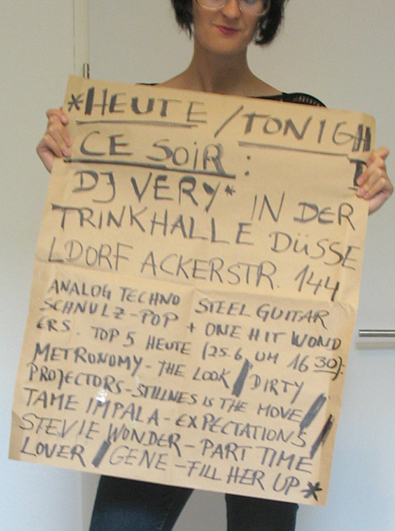 *HEUTE / TONIGH
T
CE SOIR:
DJ VERY* IN DER
TRINKHALLE DÜSSE
LDORF ACKERSTR. 144
ANALOG TECHNO STEEL GUITAR
SCHNULZ-POP + ONE HIT WOND
ERS. TOP 5 HEUTE (25.6. UM 16 30):
METRONOMY - THE LOOK / DIRTY
PROJECTORS - STILLNES IS THE MOVE /
TAME IMPALA - EXPECTATIONS /
STEVIE WONDER - PART TIME
LOVER / GENE - FILL HER UP *